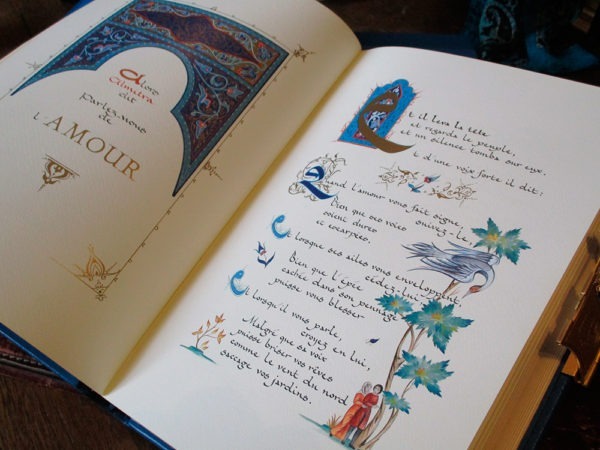 Alors
Almitra
dit
Parlez-nous
de
l'AMOUR
Et il leva la tête
et regarda le peuple,
et un silence tomba sur eux.
Et d'une voix forte il dit:
Quand l'amour vous fait signe,
suivez-le,
Bien que ses voies
soient dures
et escarpées.
Et lorsque ses ailes vous enveloppent,
cédez-lui
Bien que l'épée
cachée dans son pennage
puisse vous blesser
Et lorsqu'il vous parle,
croyez en lui,
Malgré que sa voix
puisse briser vos rêves
comme le vent du nord
saccage vos jardins.